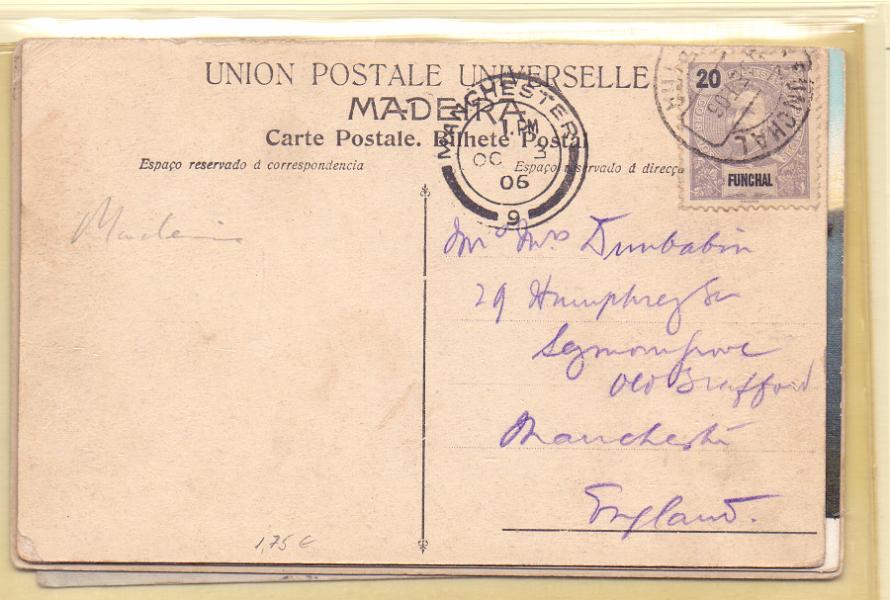 UNION POSTALE UNIVERSELLE
MADEIRA
Carte Postale. Bilhete Postal
Espaço reservado á correspondencia
Espaço reservado á direcçã
MANCHESTER
1. PM
OC 3
06
9
20
FUNCHAL
FUNCHAL
Madeira
Mr Mrs Dunbabin
29 Humphrey St
Seymour Grove
Old Trafford
Manchester
England.
1,75 €